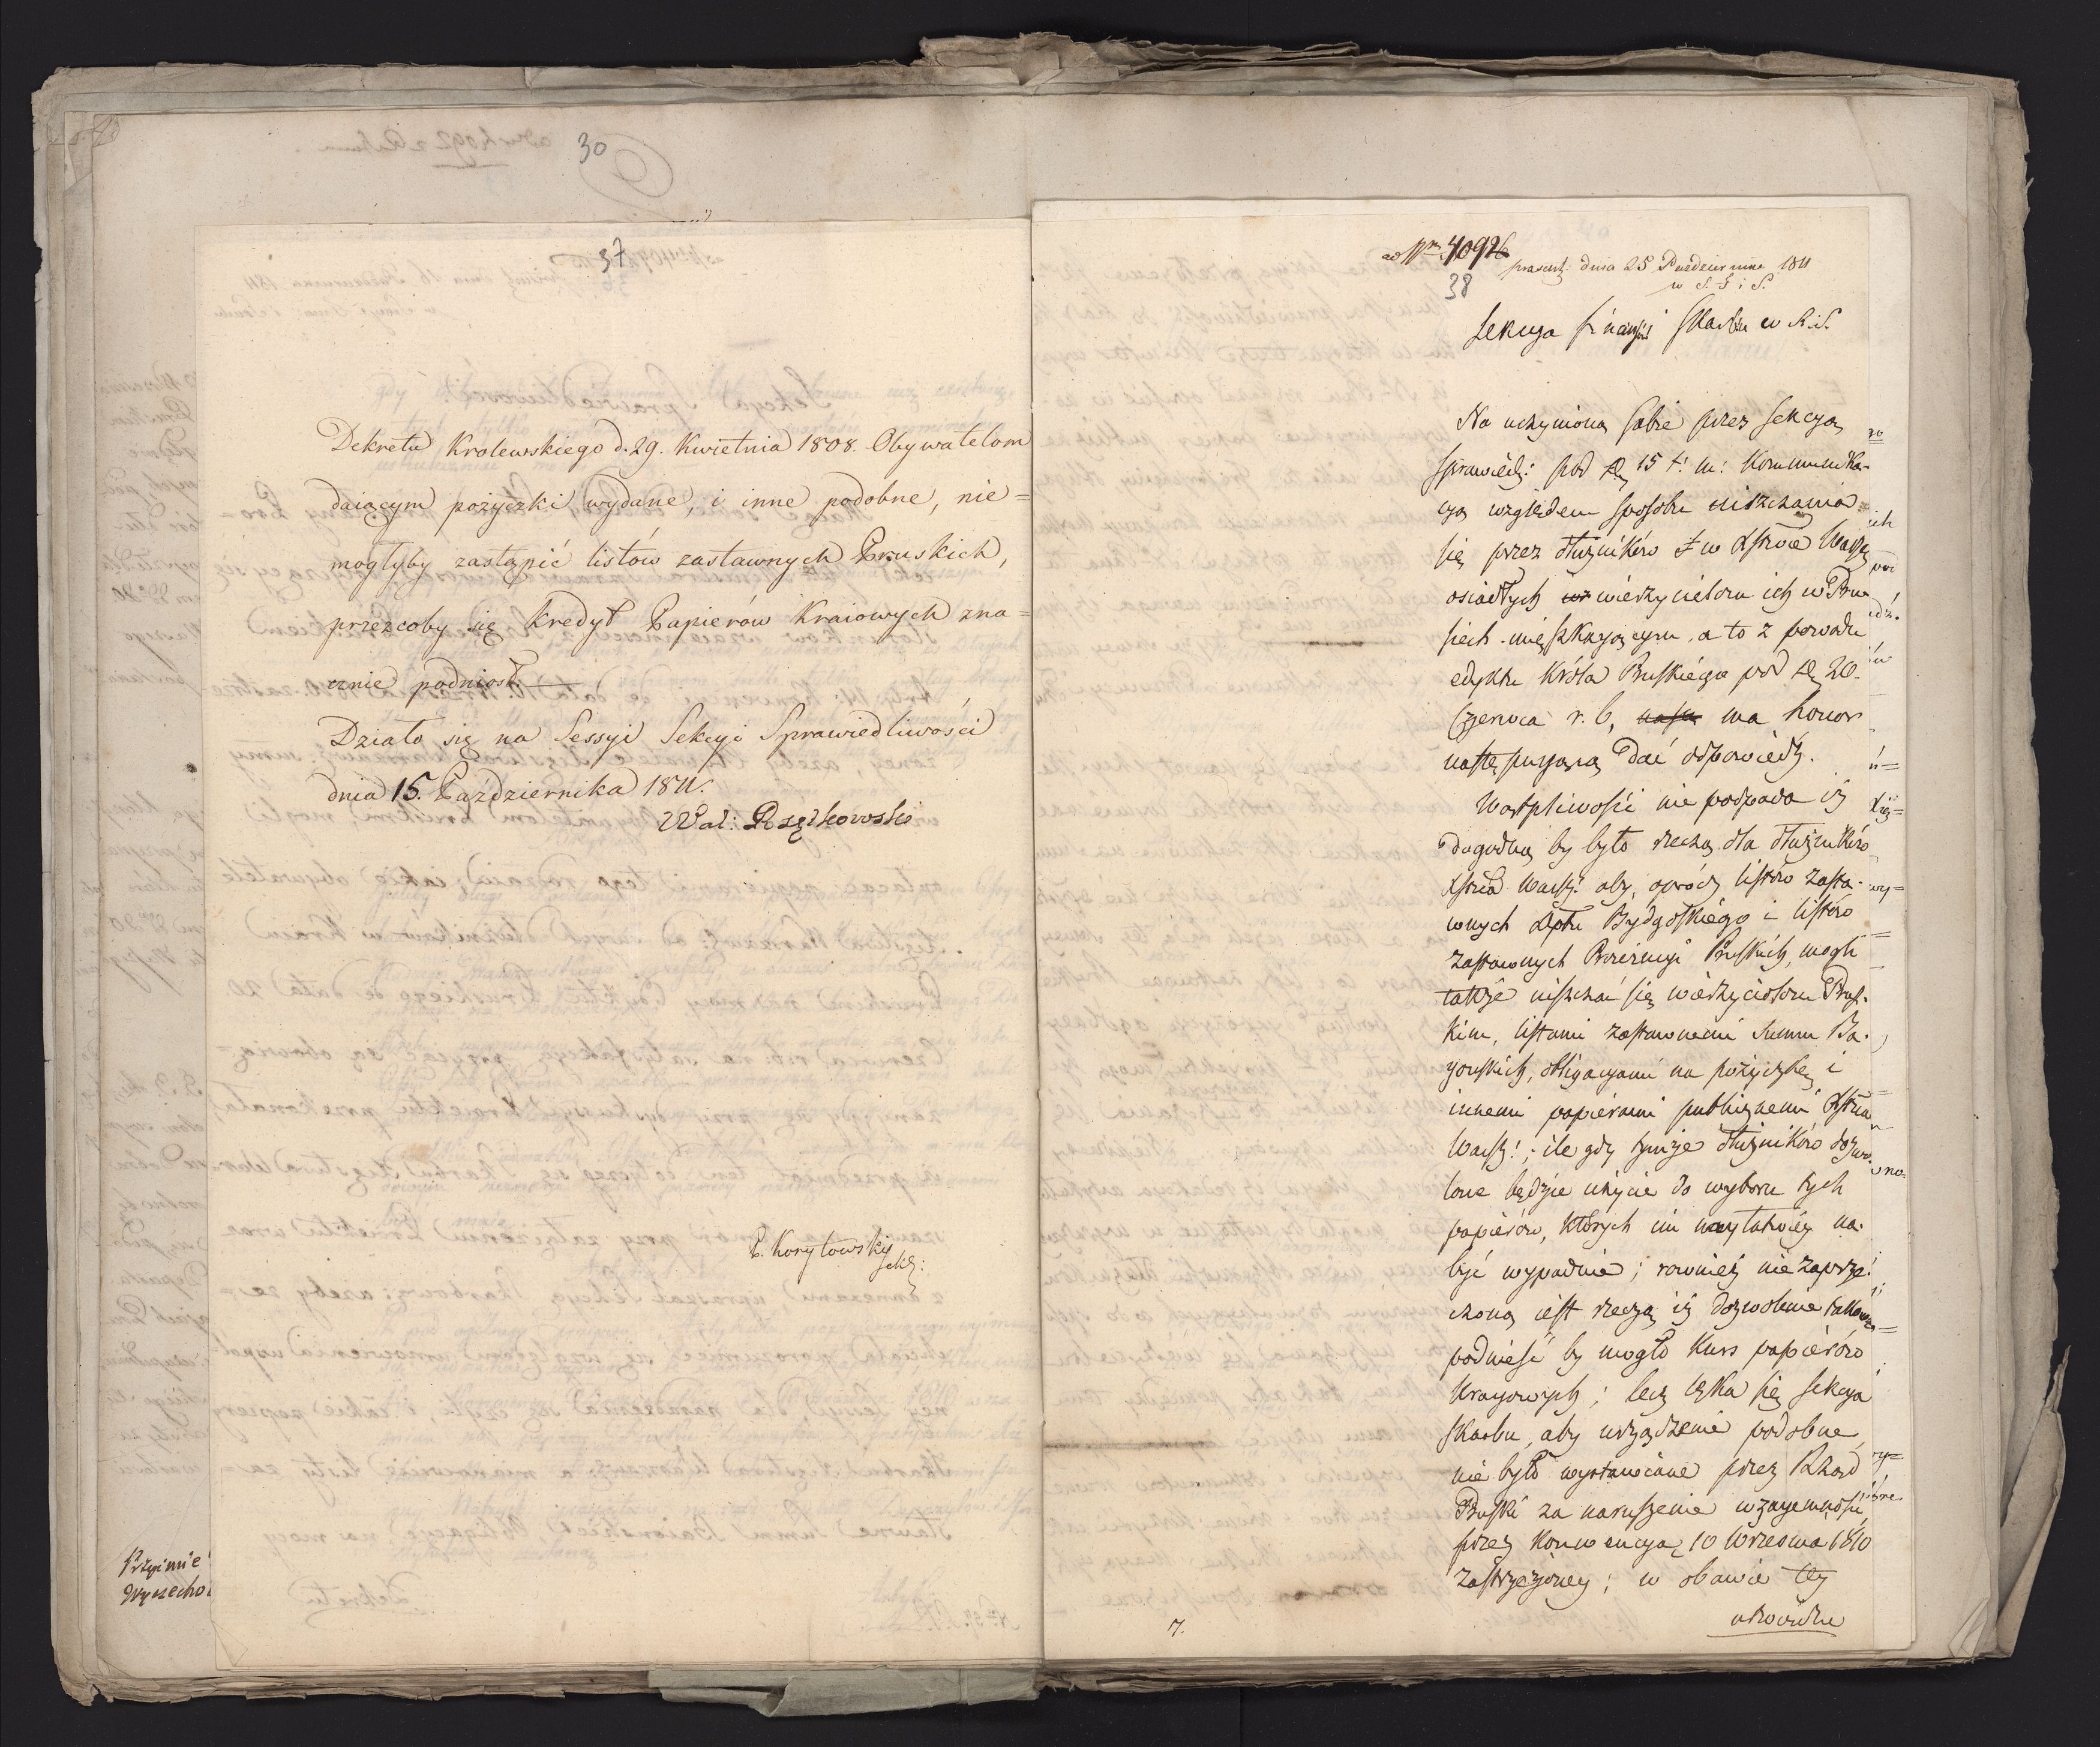 30
37
Dekretu Krolewskiego d. 29. Kwietnia 1808. Obywatelom
daiącym pożyczki wydane, i inne podobne, nie=
mogłyby zastąpić listów zastawnych Pruskich,
przezcoby się Kredyt Papierów Kraiowych zna=
cznie podniosł.
Działo się na Sessyi Sekcyi Sprawiedliwości
dnia 15. Października 1811.
P. Korytowski
Sekr:
Przyimie
ad Nrm 4092
38
praesent: dnia 25 Pazdziernika 1811
w S. S i S.
Sekcya Finansów i Skarbu w R. S.
Na uczynioną sobie przez Sekcyą
Sprawiedl: pod 15 t: m: Kommunika-
cyą względem sposobu uiszczania
się przez dłużników w Xstwie Warsz
osiadłych wierzycielom ich w Pru
siech mieszkaiącym, a to z powodu
edyktu Króla Pruskiégo pod 20.
Czerwca r. b. ma honor
następuiącą dać odpowiedź.
Wątpliwości nie podpada iż
dogodną by było rzeczą dla dłużników
Xstwa Warsz: aby, oprócz listów zasta-
wnych Dptu Bydgoskiégo i listów
zastawnych Prowincyi Pruskich, mogli
także uiszczać się wierzycielom Prus-
kim, listami zastawnemi Summ Ba-
yońskich, obligacyami na pożyczkę i
innemi papiérami publicznemi Xstwa
Warsz:, ile gdy tymże dłużników dozwo-
lone będzie użycie do wyboru tych
papiérów, których im naytatwiéy na-
być wypadnie; rownież nie zaprze-
czoną iest rzeczą iż dozwolenie takowe
podnieść by mogło Kurs papiérów
Krayowych; lecz lęka się Sekcya
Skarbu, aby urządzenie podobne
nie było wystawione przez Rząd
Pruski za naruszenie wzaiemności,
przez Konwencyą 10 Września 1810
zastrzeżoney; w obawie tey
utwierdza
7.